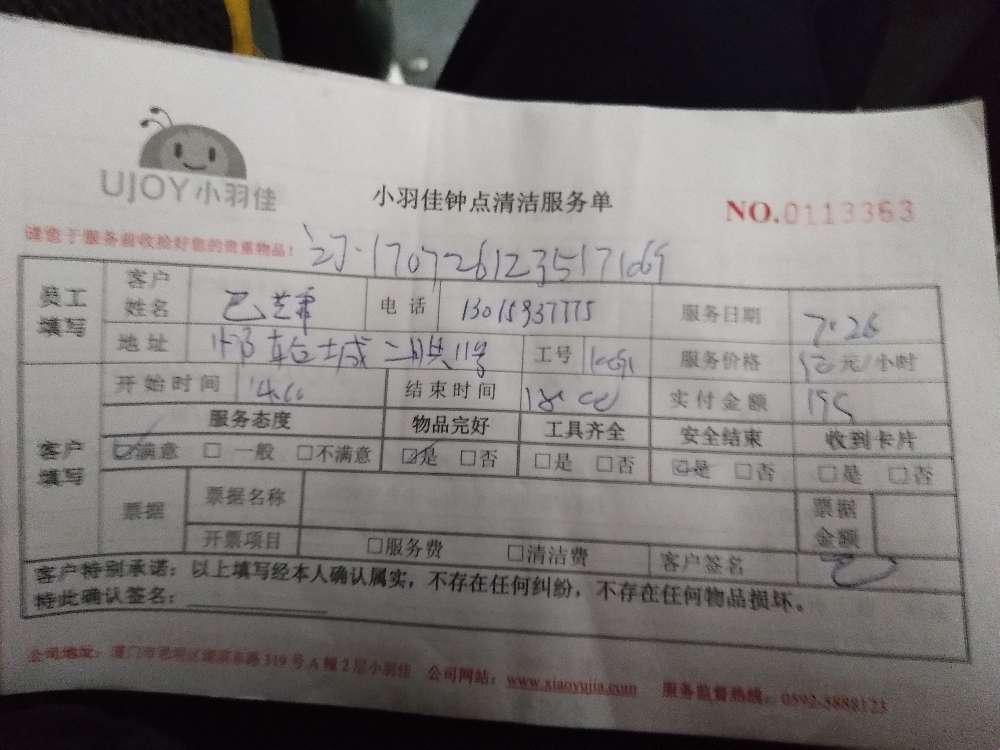 UJOY小羽佳
小羽佳钟点清洁服务单
NO.0113363
请您于服务前收捡好您的贵重物品!
订·170726123517169
员工填写 客户姓名 电话 13015937775 服务日期 7·26
地址 二期共11号 工号 服务价格 元/小时
客户填写 开始时间 14:00 结束时间 18:00 实付金额 195
服务态度 物品完好 工具齐全 安全结束 收到卡片
☑满意 □一般 □不满意 ☑是 □否 □是 □否 ☑是 □否 □是 □否
票据 票据名称 票据金额
开票项目 □服务费 □清洁费 客户签名
客户特别承诺:以上填写经本人确认属实,不存在任何纠纷,不存在任何物品损坏。
特此确认签名:
公司地址:厦门市思明区湖滨东路319号A幢2层小羽佳 公司网站:www.xiaoyujia.com 服务监督热线:0592-5888123